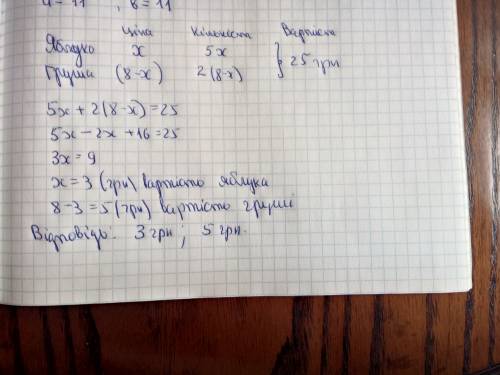 = 11 , в = 11
Ціна Кількість Вартість
Яблуко x 5x } 25 грн
Груша (8-x) 2(8-x)
5x + 2(8-x) = 25
5x - 2x + 16 = 25
3x = 9
x = 3 (грн) вартість яблука
8 - 3 = 5 (грн) вартість груші
Відповідь: 3 грн ; 5 грн.